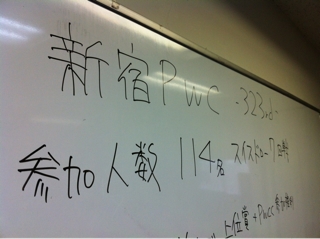 新宿PWC -323rd-
参加人数 114名 スイスドロー7回戦
上位賞 + PWCC参加権利